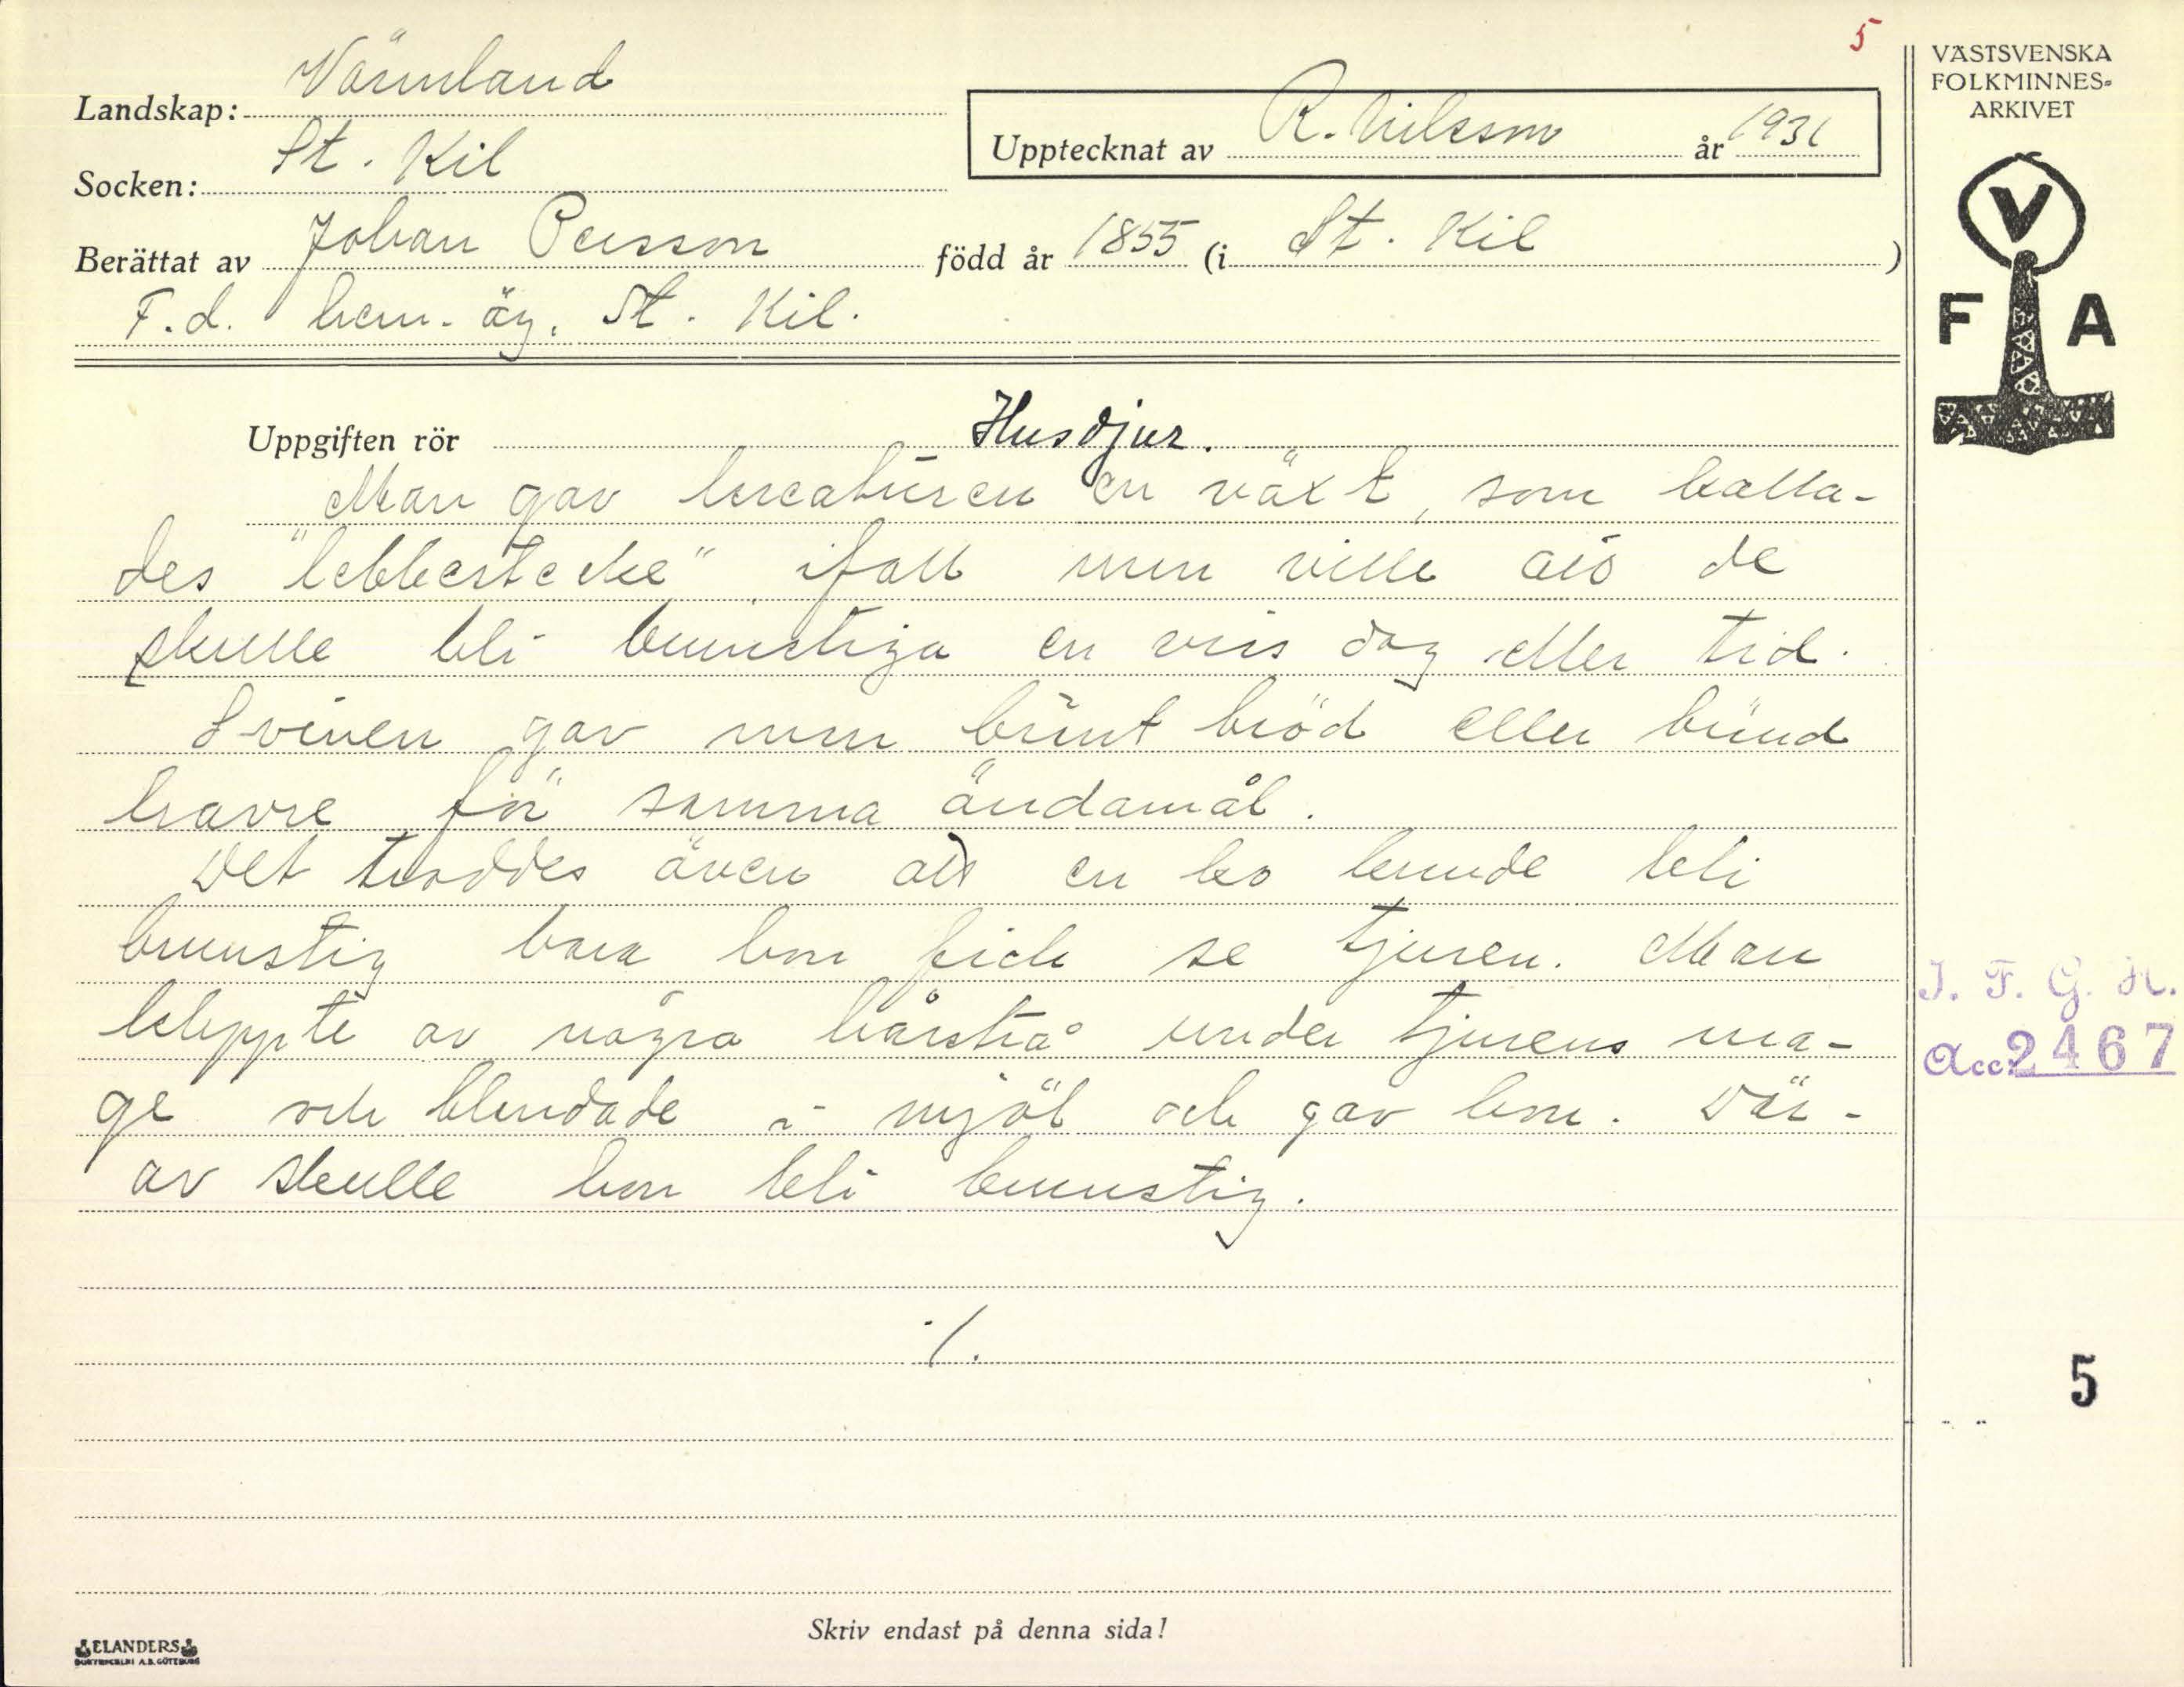 5
VÄSTSVENSKA
FOLKMINNES-
ARKIVET
Landskap: Värmland
Upptecknat av R. Nilsson år 1931
Socken: St. Kil
Berättat av Johan Persson född år 1855 (i St. Kil)
F.d. hem. äg. St. Kil.
V
F A
Uppgiften rör Husdjur.
Man gav kreaturen en växt, som kalla-
des "lebbestecke" ifall man ville att de
skulle bli brunstiga en viss dag eller tid.
Svinen gav man bränt bröd eller bränd
havre för samma ändamål.
Det troddes även att en ko kunde bli
brunstig bara hon fick se tjuren. Man
klippte av några hårstrå under tjurens ma-
ge och blandade i mjöl och gav hon. Där-
av skulle hon bli brunstig.
./.
I. F. G. H.
Acc. 2467
5
Skriv endast på denna sida!
ELANDERS
BOKTRYCKERI A.B. GÖTEBORG